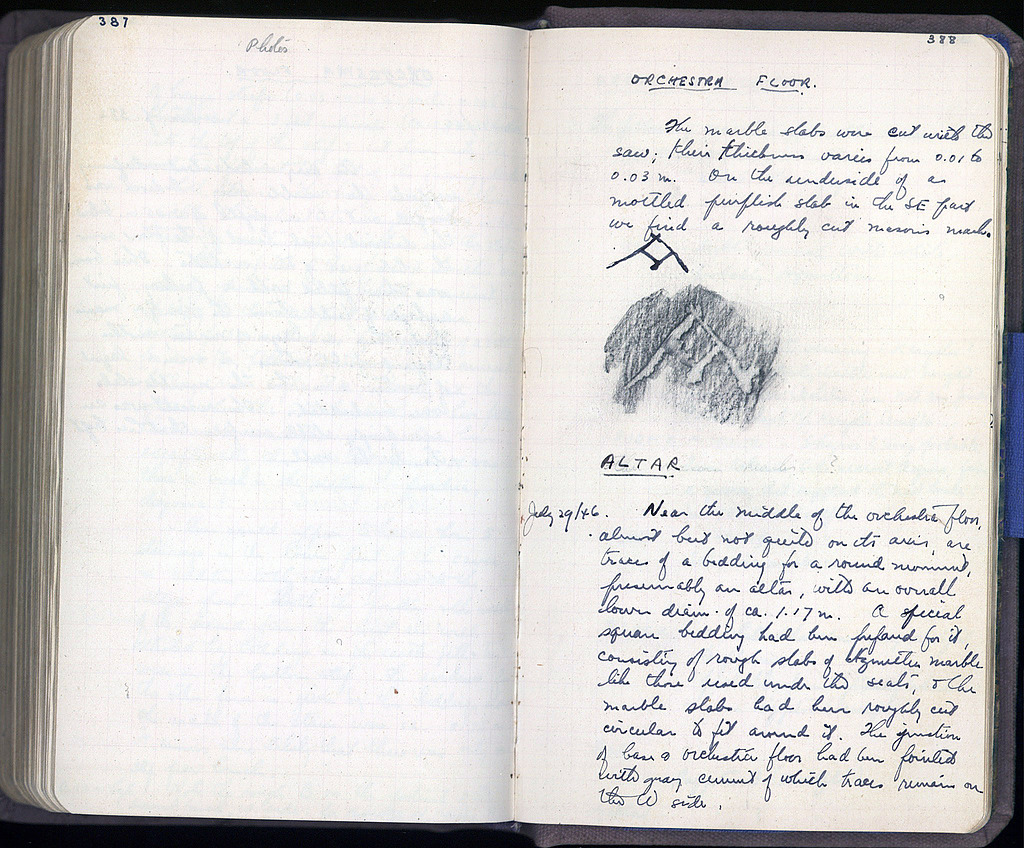 387
Photos
388
ORCHESTRA FLOOR.
The marble slabs were cut with the
saw; their thickness varies from 0.01 to
0.03 m. On the underside of a
mottled purplish slab in the SE part
we find a roughly cut mason's mark.
ALTAR
July 29/46. Near the middle of the orchestra floor,
almost but not quite on its axis, are
traces of a bedding for a round monument,
presumably an altar, with an overall
lower diam. of ca. 1.17 m. A special
square bedding had been prepared for it,
consisting of rough slabs of Hymettian marble
like those used under the seats, & the
marble slabs had been roughly cut
circular to fit around it. The junction
of base & orchestra floor had been pointed
with gray cement of which traces remain on
the W side.